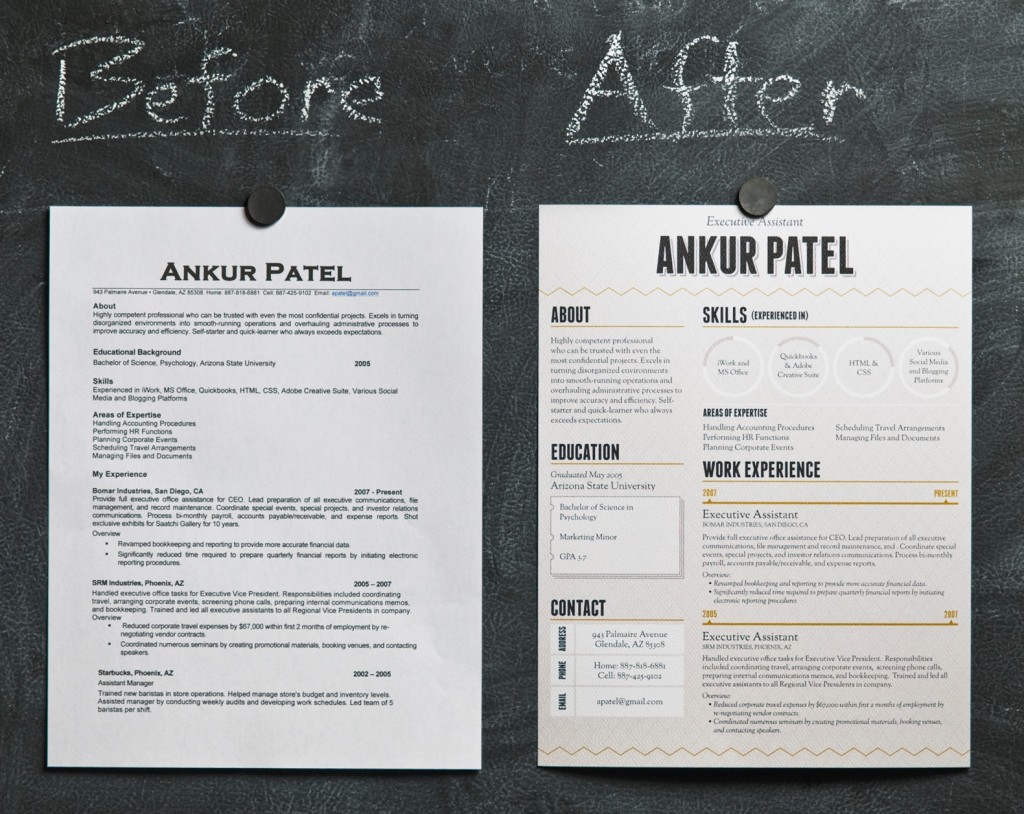 Before
After
ANKUR PATEL
943 Palmaire Avenue • Glendale, AZ 85308 Home: 887-818-6881 Cell: 887-425-9102 Email: apatel@gmail.com
About
Highly competent professional who can be trusted with even the most confidential projects. Excels in turning
disorganized environments into smooth-running operations and overhauling administrative processes to
improve accuracy and efficiency. Self-starter and quick-learner who always exceeds expectations.
Educational Background
Bachelor of Science, Psychology, Arizona State University 2005
Skills
Experienced in iWork, MS Office, Quickbooks, HTML, CSS, Adobe Creative Suite, Various Social
Media and Blogging Platforms
Areas of Expertise
Handling Accounting Procedures
Performing HR Functions
Planning Corporate Events
Scheduling Travel Arrangements
Managing Files and Documents
My Experience
Bomar Industries, San Diego, CA 2007 - Present
Provide full executive office assistance for CEO. Lead preparation of all executive communications, file
management, and record maintenance. Coordinate special events, special projects, and investor relations
communications. Process bi-monthly payroll, accounts payable/receivable, and expense reports. Shot
exclusive exhibits for Saatchi Gallery for 10 years.
Overview
• Revamped bookkeeping and reporting to provide more accurate financial data.
• Significantly reduced time required to prepare quarterly financial reports by initiating electronic
reporting procedures.
SRM Industries, Phoenix, AZ 2005 – 2007
Handled executive office tasks for Executive Vice President. Responsibilities included coordinating
travel, arranging corporate events, screening phone calls, preparing internal communications memos,
and bookkeeping. Trained and led all executive assistants to all Regional Vice Presidents in company.
Overview
• Reduced corporate travel expenses by $67,000 within first 2 months of employment by re-
negotiating vendor contracts.
• Coordinated numerous seminars by creating promotional materials, booking venues, and contacting
speakers.
Starbucks, Phoenix, AZ 2002 – 2005
Assistant Manager
Trained new baristas in store operations. Helped manage store's budget and inventory levels.
Assisted manager by conducting weekly audits and developing work schedules. Led team of 5
baristas per shift.
Executive Assistant
ANKUR PATEL
ABOUT
Highly competent professional
who can be trusted with even the
most confidential projects. Excels in
turning disorganized environments
into smooth-running operations and
overhauling administrative processes to
improve accuracy and efficiency. Self-
starter and quick-learner who always
exceeds expectations.
EDUCATION
Graduated May 2005
Arizona State University
Bachelor of Science in
Psychology
Marketing Minor
GPA 3.7
CONTACT
ADDRESS
943 Palmaire Avenue
Glendale, AZ 85308
PHONE
Home: 887-818-6881
Cell: 887-425-9102
EMAIL
apatel@gmail.com
SKILLS (EXPERIENCED IN)
iWork and
MS Office
Quickbooks
& Adobe
Creative Suite
HTML &
CSS
Various
Social Media
and Blogging
Platforms
AREAS OF EXPERTISE
Handling Accounting Procedures
Performing HR Functions
Planning Corporate Events
Scheduling Travel Arrangements
Managing Files and Documents
WORK EXPERIENCE
2007 PRESENT
Executive Assistant
BOMAR INDUSTRIES, SAN DIEGO, CA
Provide full executive office assistance for CEO. Lead preparation of all executive
communications, file management and record maintenance, and . Coordinate special
events, special projects, and investor relations communications. Process bi-monthly
payroll, accounts payable/receivable, and expense reports.
Overview:
• Revamped bookkeeping and reporting to provide more accurate financial data.
• Significantly reduced time required to prepare quarterly financial reports by initiating
electronic reporting procedures
2005 2007
Executive Assistant
SRM INDUSTRIES, PHOENIX, AZ
Handled executive office tasks for Executive Vice President. Responsibilities
included coordinating travel, arranging corporate events, screening phone calls,
preparing internal communications memos, and bookkeeping. Trained and led all
executive assistants to all Regional Vice Presidents in company.
Overview:
• Reduced corporate travel expenses by $67,000 within first 2 months of employment by
re-negotiating vendor contracts.
• Coordinated numerous seminars by creating promotional materials, booking venues,
and contacting speakers.